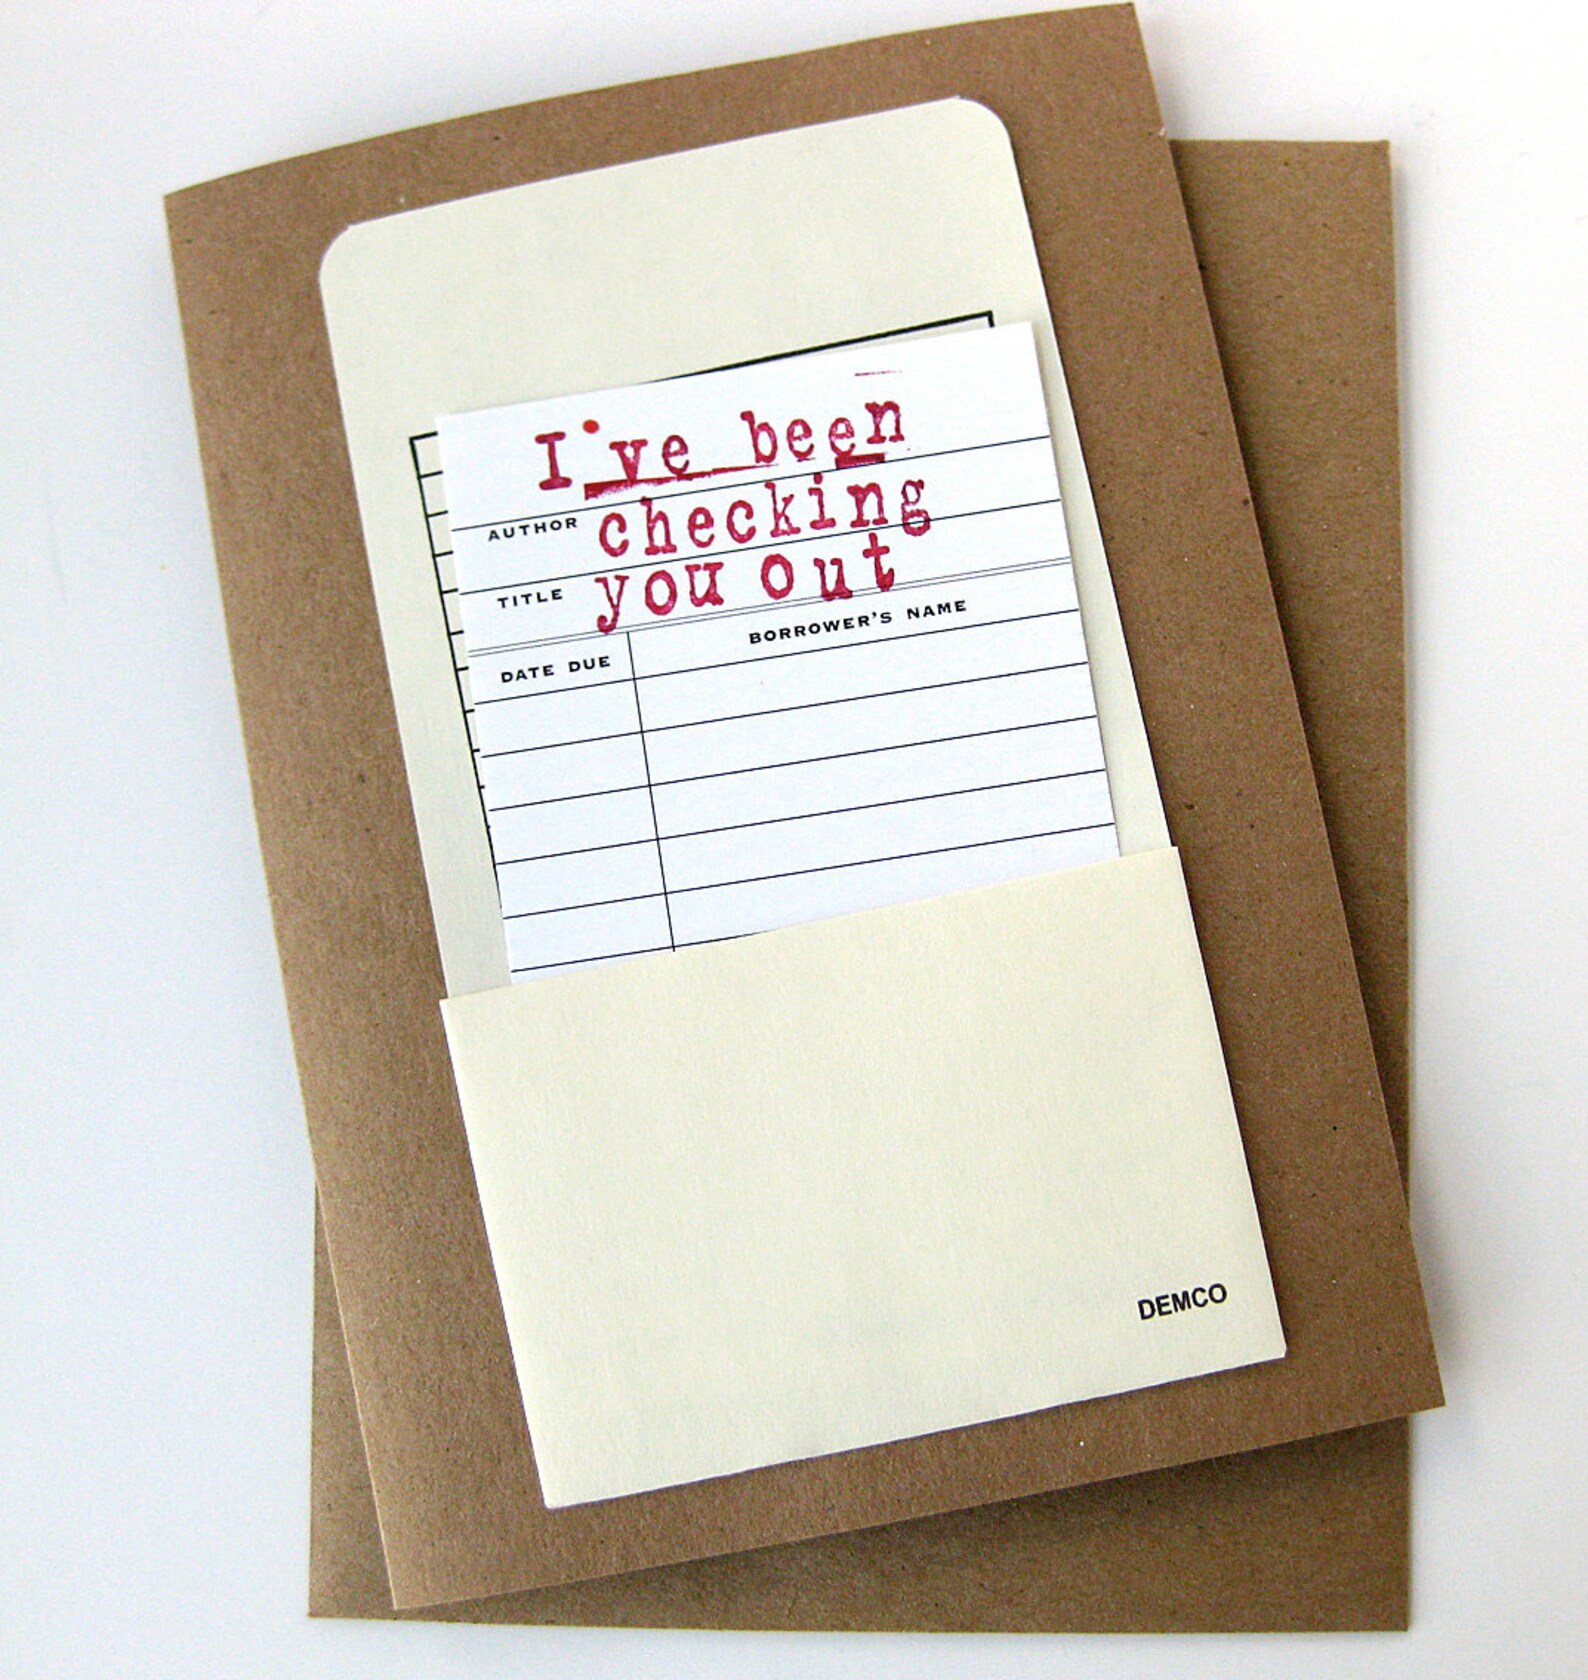 I've been
AUTHOR checking
TITLE you out
DATE DUE BORROWER'S NAME
DEMCO